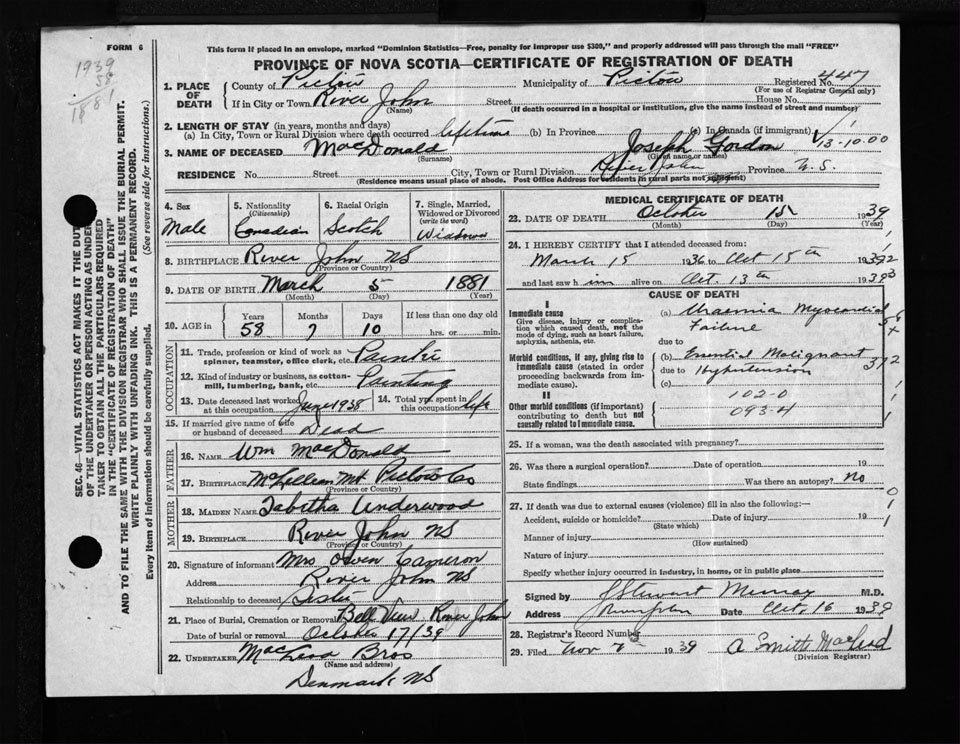 FORM 6
This form if placed in an envelope, marked "Dominion Statistics—Free, penalty for improper use $300," and properly addressed will pass through the mail "FREE"
PROVINCE OF NOVA SCOTIA—CERTIFICATE OF REGISTRATION OF DEATH
1939
58
1881
SEC. 46—VITAL STATISTICS ACT MAKES IT THE DUTY
OF THE UNDERTAKER OR PERSON ACTING AS UNDER-
TAKER TO OBTAIN ALL THE PARTICULARS REQUIRED
IN THE "CERTIFICATE OF REGISTRATION OF DEATH"
AND TO FILE THE SAME WITH THE DIVISION REGISTRAR WHO SHALL ISSUE THE BURIAL PERMIT.
WRITE PLAINLY WITH UNFADING INK. THIS IS A PERMANENT RECORD.
Every item of information should be carefully supplied. (See reverse side for instructions.)
1. PLACE OF DEATH County of Pictou Municipality of Pictou Registered No. 447
(For use of Registrar General only)
If in City or Town River John Street House No.
(Name) (If death occurred in a hospital or institution, give the name instead of street and number)
2. LENGTH OF STAY (in years, months and days)
(a) In City, Town or Rural Division where death occurred lifetime (b) In Province (c) In Canada (if immigrant)
13-10.00
3. NAME OF DECEASED MacDonald Joseph Gordon
(Surname) (Given name or names)
RESIDENCE No. Street City, Town or Rural Division River John Province N.S.
(Residence means usual place of abode. Post Office Address for residents in rural parts not sufficient)
4. Sex Male
5. Nationality (Citizenship) Canadian
6. Racial Origin Scotch
7. Single, Married, Widowed or Divorced (write the word) Widower
8. BIRTHPLACE River John NS
(Province or Country)
9. DATE OF BIRTH March 5 1881
(Month) (Day) (Year)
10. AGE in Years 58 Months 7 Days 10 If less than one day hrs. or min.
OCCUPATION
11. Trade, profession or kind of work as spinner, teamster, office clerk, etc. Painter
12. Kind of industry or business, as cotton-mill, lumbering, bank, etc. Painting
13. Date deceased last worked at this occupation June 1938
14. Total yrs. spent in this occupation life
15. If married give name of wife or husband of deceased Dead
FATHER
16. NAME Wm MacDonald
17. BIRTHPLACE McLellan Mt Pictou Co
(Province or Country)
MOTHER
18. MAIDEN NAME Tabitha Underwood
19. BIRTHPLACE River John NS
(Province or Country)
20. Signature of informant Mrs Owen Cameron
Address River John NS
Relationship to deceased Sister
21. Place of Burial, Cremation or Removal Bell View River John
Date of burial or removal October 17/39
22. UNDERTAKER Bros
(Name and address)
Denmark, NS
MEDICAL CERTIFICATE OF DEATH
23. DATE OF DEATH October 15 1939
(Month) (Day) (Year)
24. I HEREBY CERTIFY that I attended deceased from:
March 15 1936 to Oct 15th 1939
and last saw him alive on Oct. 13th 1939
CAUSE OF DEATH
I
Immediate cause
Give disease, injury or complication which caused death, not the mode of dying, such as heart failure, asphyxia, asthenia, etc.
(a) Uraemia Myocardial
Failure
due to
Morbid conditions, if any, giving rise to immediate cause (stated in order proceeding backwards from immediate cause).
(b) Essential Malignant
due to Hypertension
(c)
II
Other morbid conditions (if important) contributing to death but not causally related to immediate cause.
102-0
093-4
25. If a woman, was the death associated with pregnancy?
26. Was there a surgical operation? Date of operation 19
State findings Was there an autopsy? No
27. If death was due to external causes (violence) fill in also the following:—
Accident, suicide or homicide? Date of injury 19
(State which)
Manner of injury
(How sustained)
Nature of injury
Specify whether injury occurred in industry, in home, or in public place
Signed by J Stewart Murray M.D.
Address River John Date Oct. 16 1939
28. Registrar's Record Number
29. Filed Nov 1939 A Smith MacLeod
(Division Registrar)